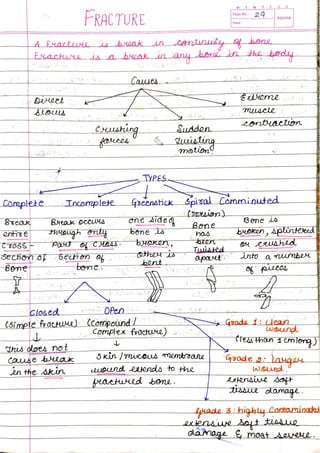 M T W T F S S
Page No.: 29
Date:
YOUVA
FRACTURE
A Fracture is break in continuity of bone
Fracture is a break in any bone in the body
Causes
Direct blows
Crushing forces
Sudden Twisting motion
Extreme muscle contraction
TYPES
Complete
Break entire cross-section of Bone
Incomplete
Break occurs through only part of cross section of bone.
Greenstick
one side of bone is broken, other is bent.
Spiral (Torsion)
Bone has been Twisted apart
Comminuted
Bone is broken, splintered or crushed into a number of pieces
Closed
(Simple fracture)
This does not cause break in the skin
Open
(Compound / Complex fracture)
Skin / mucous membrane wound extends to the fractured bone.
Grade 1: clean wound
(less than 1 cm long)
Grade 2: larger wound
extensive soft tissue damage.
Grade 3: highly Contaminated
extensive soft tissue damage & most severe.